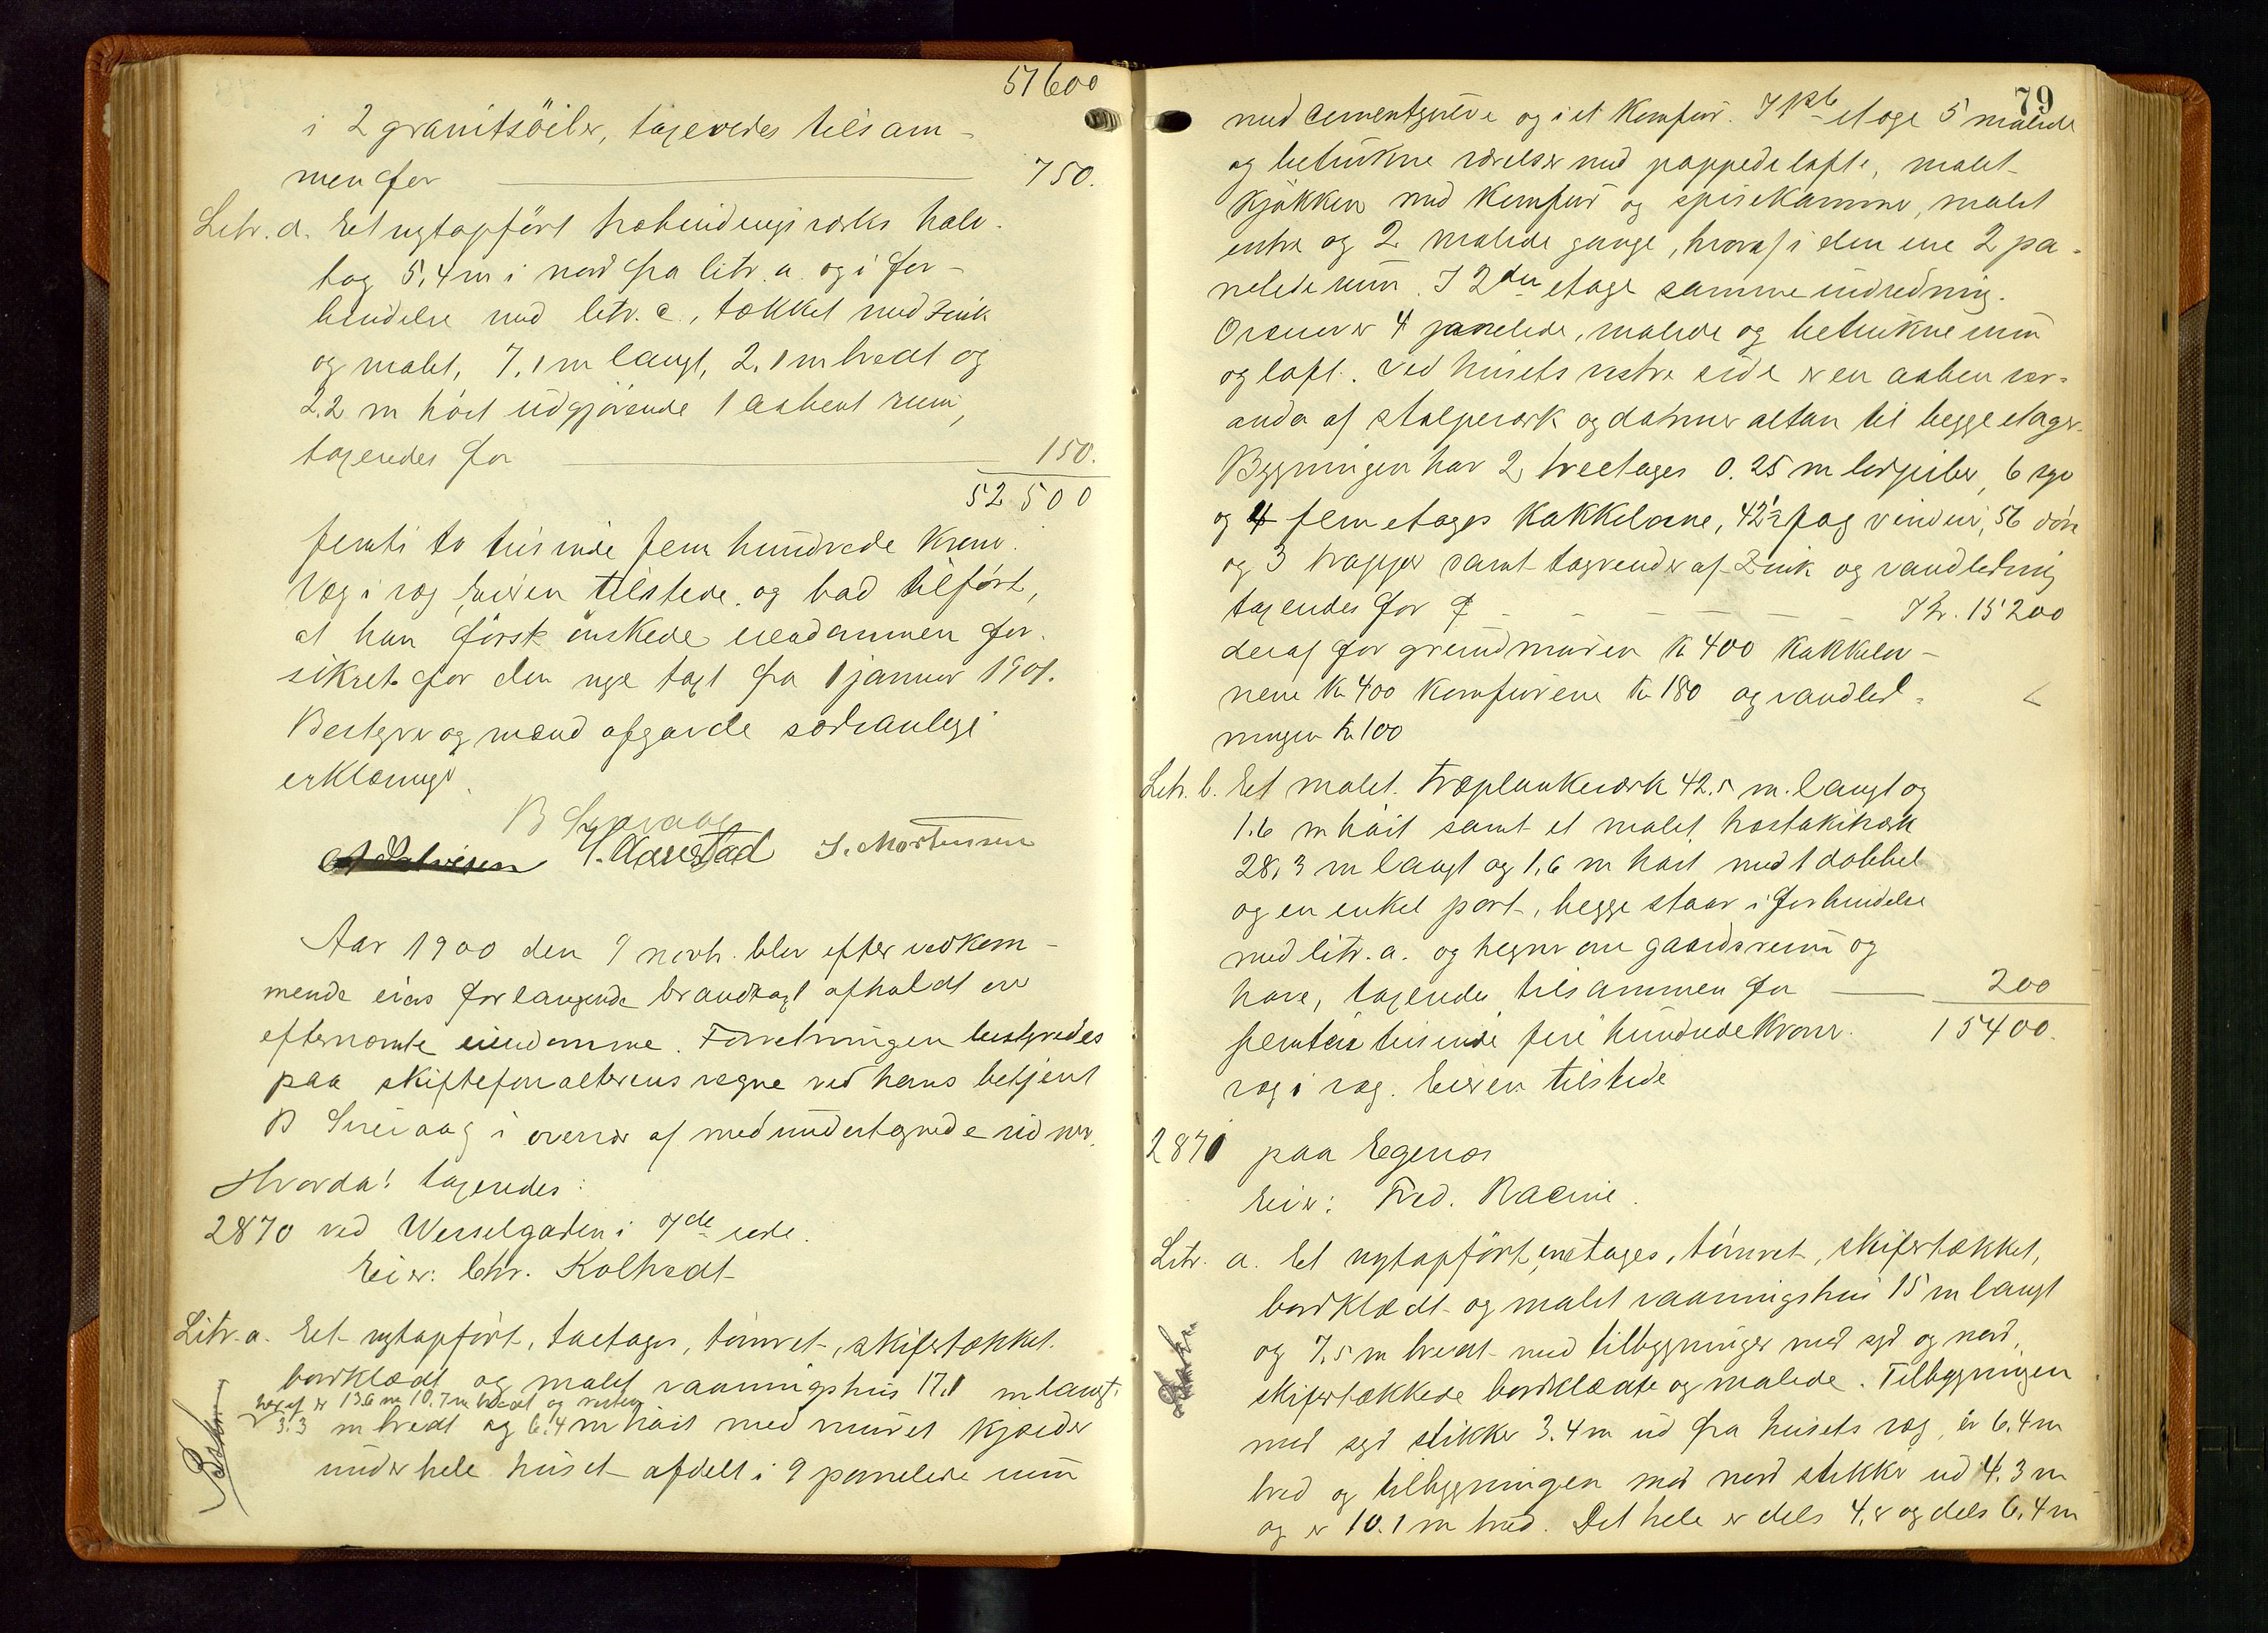 51600
i 2 granitsöiler, taxeredes tilsam-
men for 750.
Litr. d. Et nytopfört træbindingsverks halv-
tag 5,4 m i nord fra litr. a og i for-
bindelse med litr. c, tækket med zink
og malet, 7,1 m langt, 2,1 m bredt og
2,2 m höit udgjörende 1 aabent rum,
taxeredes for 150.
52500
femti to tusinde fem hundrede kroner.
Væg i væg Eieren tilstede og bad tilført,
at han først ønskede eiendommen for-
sikret for den nye taxt fra 1 januar 1901.
Bestyrer og mænd afgavde sædvanlige
erklæringe.
B Sveivaag
J. Aarestad J. Mortensen
Aar 1900 den 9 novb. blev efter vedkom-
mende eiers forlangende brandtaxt afholdt over
efternævnte eiendomme. Forretningen bestyredes
paa skifteforvalterens vegne ved hans betjent
B Sveivaag i overvær af medundertegnede vidner.
Hvorda! taxeredes:
2870 ved Wesselgaden i 7de rode.
Eier: Chr. Kolhredt
Litr. a. Et nytopført, toetages, tömret, skifertækket.
bordklædt og malet vaaningshus 17.1 m langt.
heraf er 13.6 m 10.7 m bredt og resten
3.3 m bredt og 6.4 m höit med muret kjælder
under hele huset afdelt i 9 panelede rum
79
med cementgulve og i et Komfur. I 1ste etage 5 malede
og betrukne værelser med pappede lofte, malet
Kjøkken med Komfur og spisekammer, malet
entre og 2 malede gange, hvoraf i den ene 2 pa-
nelede rum. I 2den etage samme indredning.
Ovenover 4 panelede, malede og betrukne rum
og loft. Ved husets vestre side er en aaben ver-
anda af stolpeverk og dobner altan til begge etager.
Bygningen har 2 treetages 0.25 m ledpiber, 6 syv
og 4 femetages Kakkelovne, 42½ fag vinduer, 56 døre
og 3 trapper samt tagrender af Zink og vandledning
taxeredes for Kr. 15200
deraf for grundmuren Kr 400 Kakkelov-
nene Kr 400 Komfurene Kr 180 og vandled-
ningen Kr 100
Litr. b. Et malet træplankeverk 42.5 m. langt og
1.6 m höit samt et malet træstakitværk
28,3 m langt og 1,6 m höit med 1 dobbel
og en enkel port, begge staar i forbindelse
med litr. a. og hegner om gaardsrum og
have, taxeredes tilsammen for 200
femten tusinde fire hundrede Kroner. 15400.
væg i væg. Eieren tilstede
2871 paa Egenæs
Eier: Fred. Racine.
Litr. a. Et nytopført, enetages, tömret, skifertækket,
bordklædt og malet vaaningshus 15 m langt
og 7,5 m bredt med tilbygninger mod syd og nord,
skifertækkede bordklædte og malede. Tilbygningen
mod syd stikker 3.4 m ud fra husets væg, er 6.4 m
bred og tilbygningen mod nord stikker ud 4.3 m
og er 10.1 m bred. Det hele er dels 4,8 og dels 6,4 m